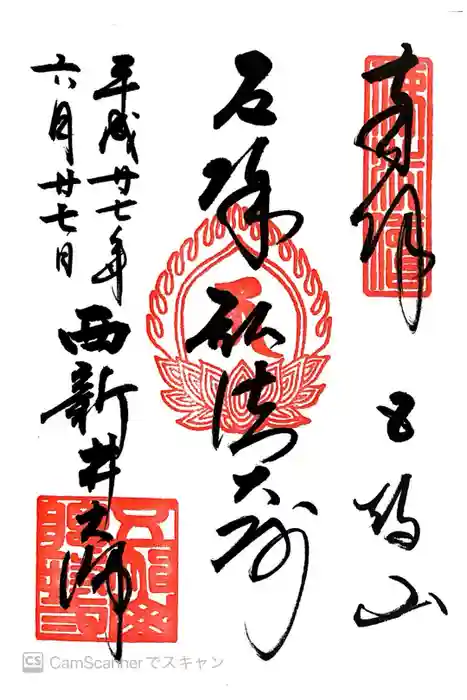 奉拝
五智山
厄除弘法大師
平成廿七年
六月廿七日
西新井大師
五智山
總持寺
CS CamScannerでスキャン